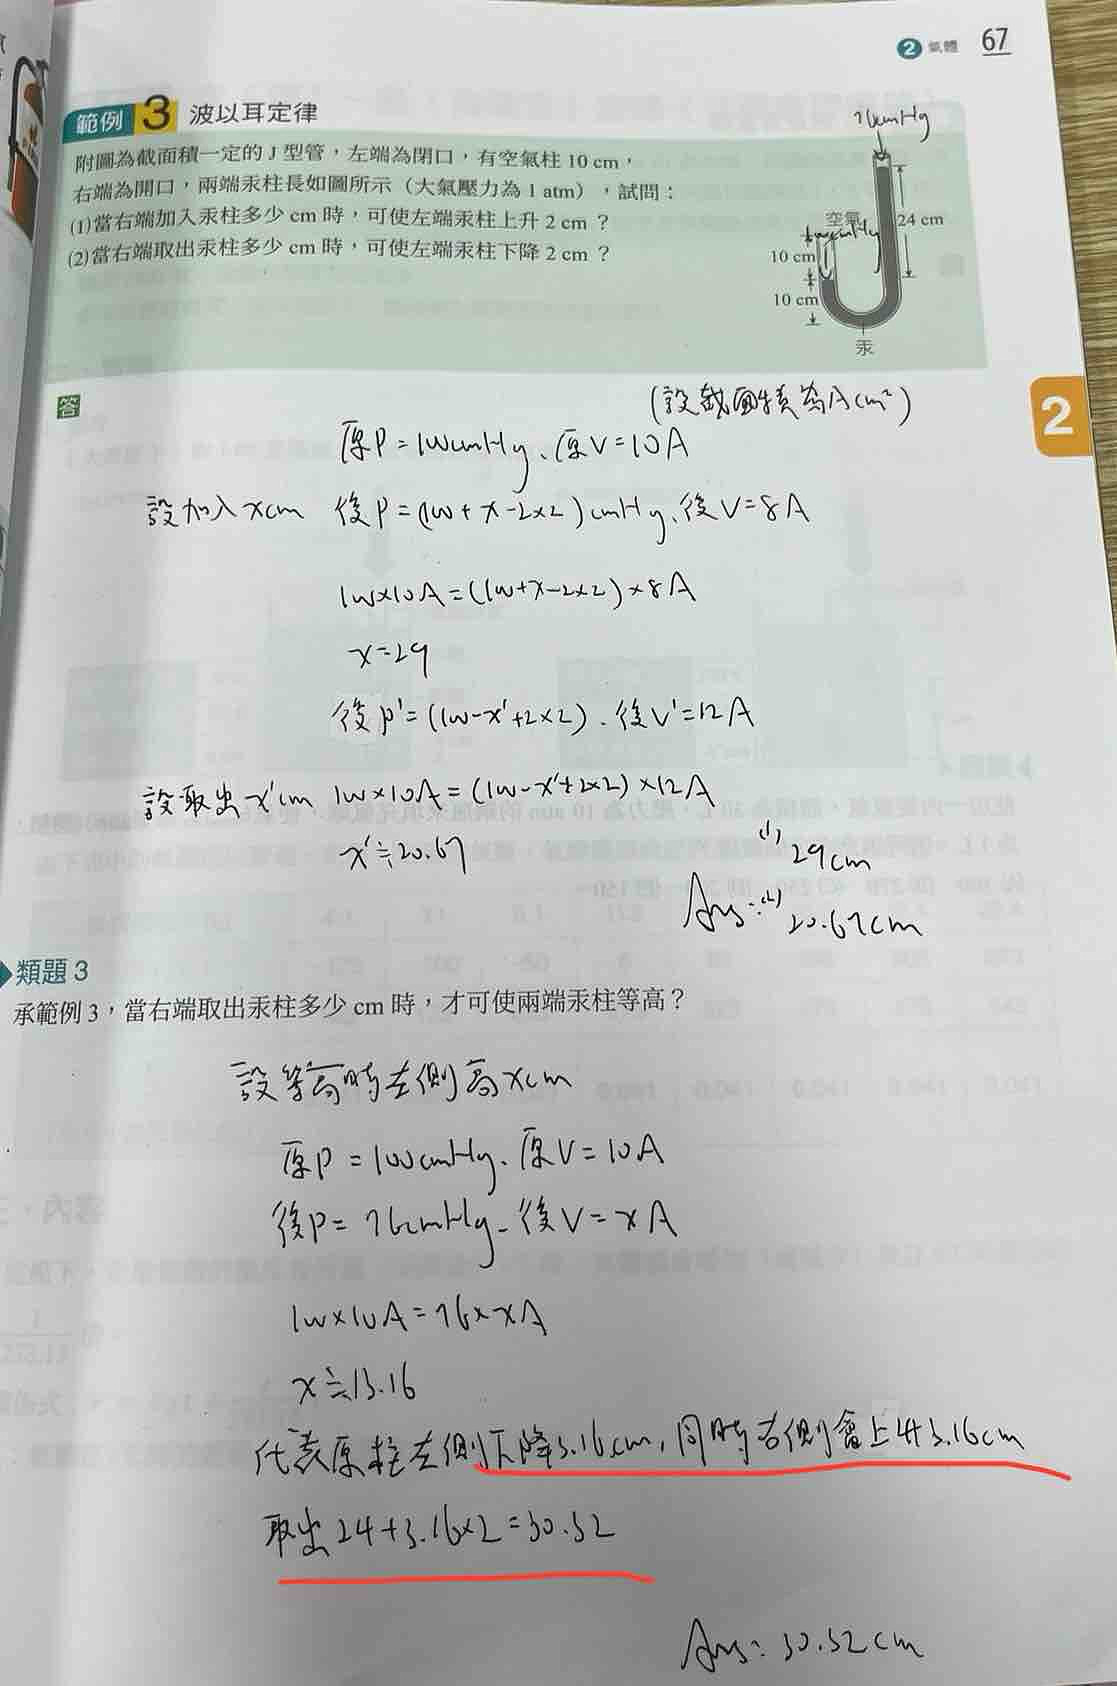 2 氣體 67
範例 3 波以耳定律
附圖為截面積一定的 J 型管，左端為閉口，有空氣柱 10 cm，
右端為開口，兩端汞柱長如圖所示（大氣壓力為 1 atm），試問：
(1)當右端加入汞柱多少 cm 時，可使左端汞柱上升 2 cm？
(2)當右端取出汞柱多少 cm 時，可使左端汞柱下降 2 cm？
76cmHg
空氣
24 cm
10 cm
10 cm
汞
2
答
(設截面積為A cm²)
原P=100cmHg、原V=10A
設加入xcm 後P=(100+x-2×2)cmHg、後V=8A
100×10A=(100+x-2×2)×8A
x=29
後P'=(100-x'+2×2)、後V'=12A
設取出x'cm 100×10A=(100-x'+2×2)×12A
x'≒20.67
(1) 29cm
Ans:(2) 20.67cm
類題 3
承範例 3，當右端取出汞柱多少 cm 時，才可使兩端汞柱等高？
設等高時左側高xcm
原P=100cmHg、原V=10A
後P=76cmHg、後V=xA
100×10A=76×xA
x≒13.16
代表原柱左側下降3.16cm，同時右側會上升3.16cm
取出24+3.16×2=30.32
Ans: 30.32cm